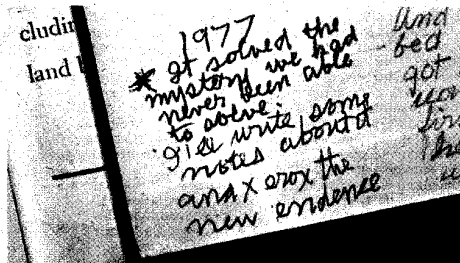 cludin
land
1977
* It solved the
mystery we had
never been able
to solve.
I'll write some
notes about it
and xerox the
new evidence
und
bed
got